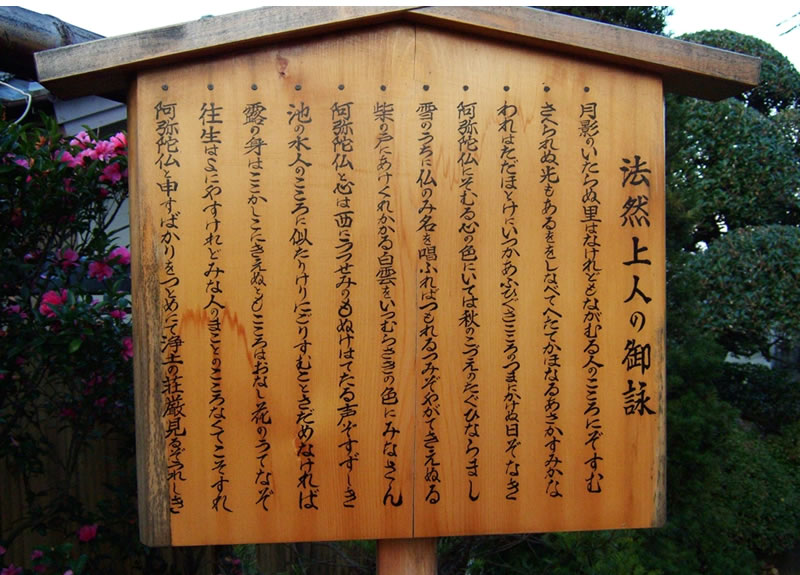 法然上人の御詠
月影のいたらぬ里はなけれどもながむる人のこころにぞすむ
さへられぬ光もあるををしなべてへだてかほなるあさかすみかな
われはただほとけにいつかあふひぐさこころのつまにかけぬ日ぞなき
阿弥陀仏にそむる心の色にいでは秋のこづえのたぐひならまし
雪のうちに仏のみ名を唱ふればつもれるつみぞやがてきえぬる
柴の戸にあけくれかかる白雲をいつむらさきの色にみなさん
阿弥陀仏と心は西にうつせみのもぬけはてたる声ぞすずしき
池の水人のこころに似たりけりにごりすむことさだめなければ
露の身はここかしこにてきえぬともこころはおなし花のうてなぞ
往生はよにやすけれどみな人のまことのこころなくてこそすれ
阿弥陀仏と申すばかりをつとめにて浄土の荘厳見るぞうれしき